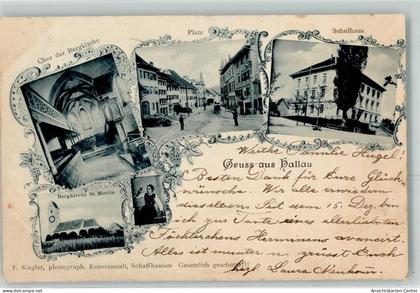 Chor der Bergkirche
Platz
Schulhaus
Gruss aus Hallau
Werthe Familie Hugel!
Besten Dank für Eure Glück
wünsche. Wir alle erwiedern
dieselben. Seit dem 15. Dez. bin
ich zur Tante eines allerliebsten
Töchterchens avanciert.
Alles ist munter u. grüsst Euch
herzl. Laura Neukomm.
Bergkirche St. Moritz
F. Kugler, photograph. Kunstanstalt, Schaffhausen Gesetzlich geschützt!
www.ansichtskartenversand.com
Ansichtskarten-Center